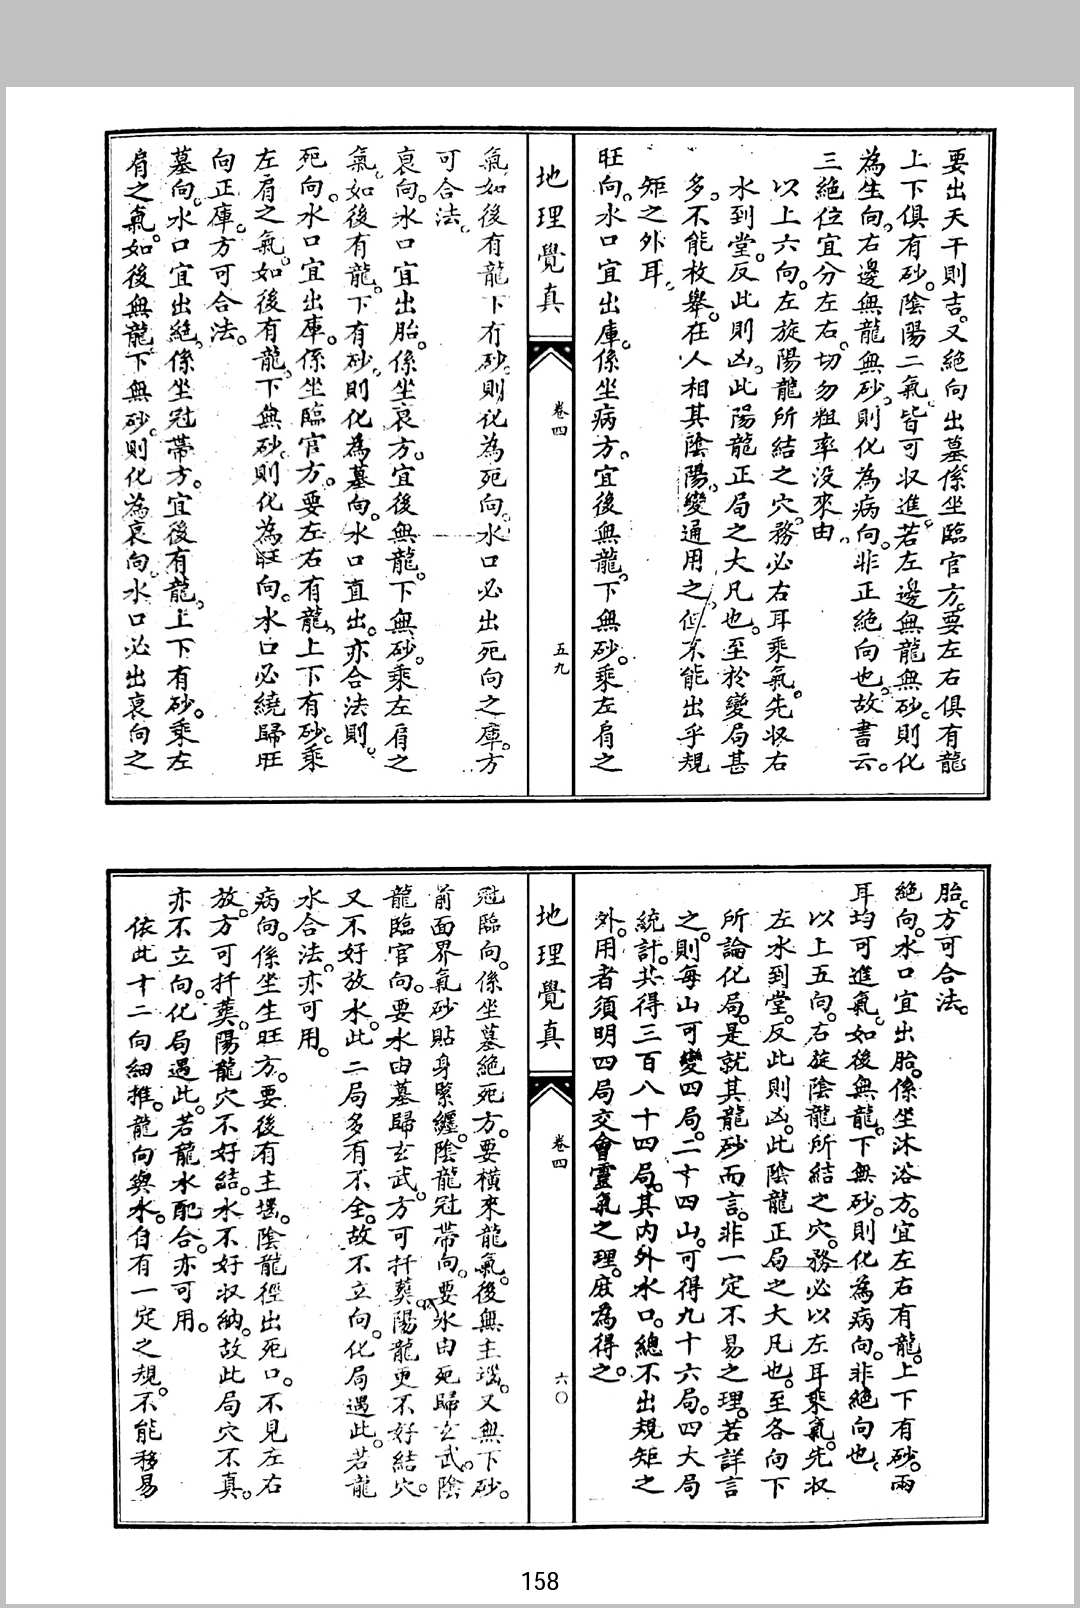 要出天干則吉。又絕向出墓。係坐臨官方。要左右俱有龍
上下俱有砂。陰陽二氣。皆可収進。若左邊無龍無砂。則化
為生向。右邊無龍無砂。則化為病向。非正絕向也。故書云。
三絕位宜分左右。切勿粗率沒來由。
以上六向。左旋陽龍所結之穴。務必右耳乘氣。先収右
水到堂。反此則凶。此陽龍正局之大凡也。至於變局甚
多。不能枚舉。在人相其陰陽。變通用之。但不能出乎規
矩之外耳。
旺向。水口宜出庫。係坐病方。宜後無龍。下無砂。乘左肩之
地理覺真
卷四
五九
氣。如後有龍下有砂。則化為死向。水口必出死向之庫。方
可合法。
衰向。水口宜出胎。係坐衰方。宜後無龍。下無砂。乘左肩之
氣。如後有龍。下有砂。則化為墓向。水口直出。亦合法則。
死向。水口宜出庫。係坐臨官方。要左右有龍。上下有砂。乘
左肩之氣。如後有龍。下無砂。則化為旺向。水口必繞歸旺
向正庫。方可合法。
墓向。水口宜出絕。係坐冠帶方。宜後有龍。上下有砂。乘左
肩之氣。如後無龍。下無砂。則化為衰向。水口必出衰向之
胎。方可合法。
絕向。水口宜出胎。係坐沐浴方。宜左右有龍。上下有砂。兩
耳均可進氣。如後無龍。下無砂。則化為病向。非絕向也。
以上五向。右旋陰龍所結之穴。務必以左耳乘氣。先収
左水到堂。反此則凶。此陰龍正局之大凡也。至各向下
所論化局。是就其龍砂而言。非一定不易之理。若詳言
之。則每山可變四局。二十四山。可得九十六局。四大局
統計。共得三百八十四局。其內外水口。總不出規矩之
外。用者須明四局交會靈氣之理。庶為得之。
地理覺真
卷四
六〇
冠臨向。係坐墓絕死方。要橫來龍氣。後無主瑙。又無下砂。
前面界氣砂貼身緊纏。陰龍冠帶向。要水由死歸玄武。陰
龍臨官向。要水由墓歸玄武。方可扦葬。陽龍更不好結穴。
又不好放水。此二局多有不全。故不立向。化局遇此。若龍
水合法。亦可用。
病向。係坐生旺方。要後有主瑙。陰龍徑出死口。不見左右
放。方可扦葬。陽龍穴不好結。水不好収納。故此局穴不真。
亦不立向。化局遇此。若龍水配合。亦可用。
依此十二向細推。龍向與水。自有一定之規。不能移易
158